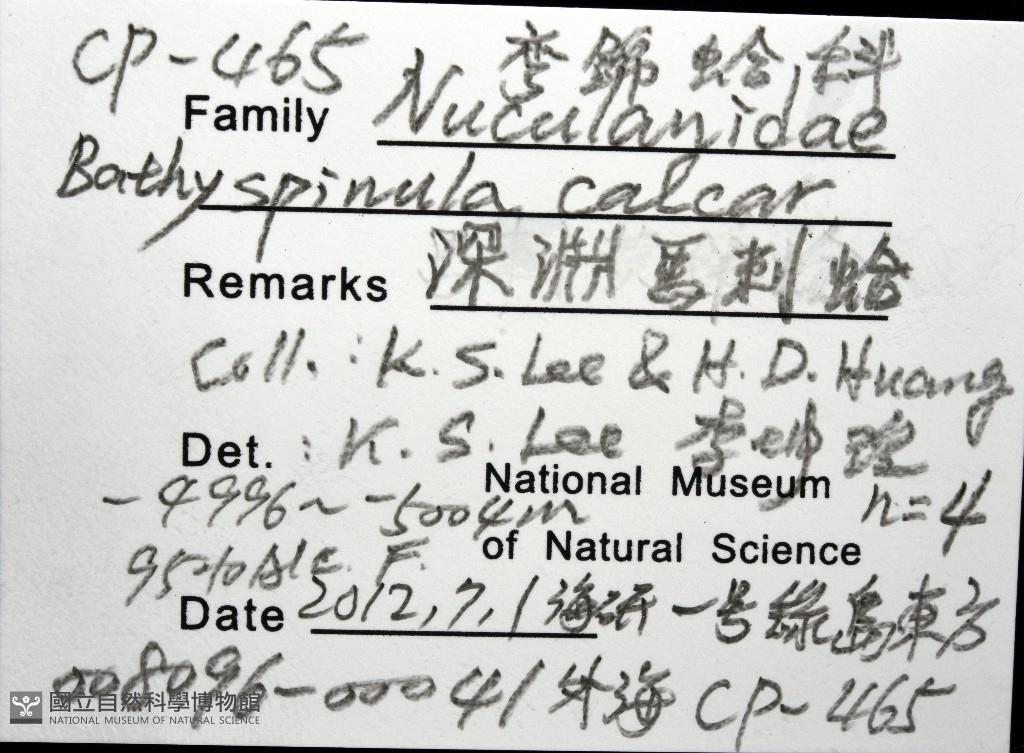 CP-465 彎錦蛤科
Family Nuculanidae
Bathyspinula calcar
Remarks 深淵馬刺蛤
Coll. : K. S. Lee & H. D. Huang
Det. : K. S. Lee 李坤瑄
National Museum n=4
-4996~-5004m
of Natural Science
95% Alc. F.
Date 2012,7,1 海研一号綠島東方
008096-00041 外海 CP-465
國立自然科學博物館
NATIONAL MUSEUM OF NATURAL SCIENCE